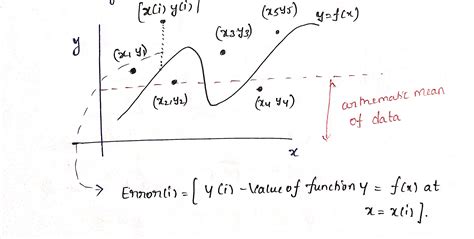 [x(i) y(i)]
y
(x1 y1)
(x2, y2)
(x3 y3)
(x5 y5)
y=f(x)
(x4 y4)
arithematic mean
of data
x
Error(i) = [ y(i) - value of function y = f(x) at
x = x(i) ].